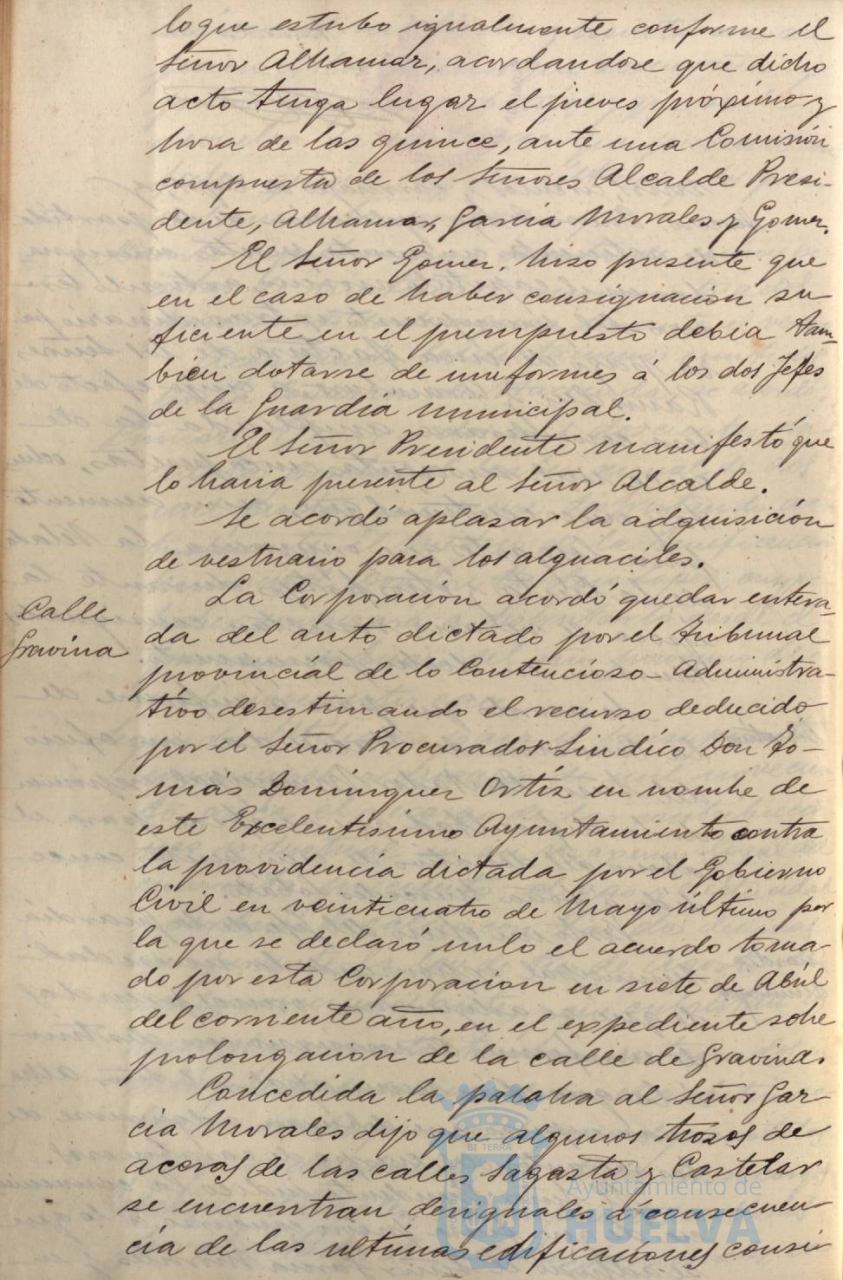 lo que estubo igualmente conforme el
Señor Alhamar, acordandose que dicho
acto tenga lugar el jueves próximo y
hora de las quince, ante una Comisión
compuesta de los Señores Alcalde Presi-
dente, Alhamar, Garcia Morales y Gomez.
El Señor Gomez. hizo presente que
en el caso de haber consignacion su
ficiente en el presupuesto debia tam-
bien dotarse de uniformes á los dos Jefes
de la Guardia municipal.
El Señor Presidente manifestó que
lo haria presente al Señor Alcalde.
Se acordó aplazar la adquisición
de vestuario para los alguaciles.
Calle
Gravina
La Corporación acordó quedar entera-
da del auto dictado por el Tribunal
provincial de lo Contencioso-Administra-
tivo desestimando el recurso deducido
por el Señor Procurador Sindico Don To-
más Domínguez Ortíz en nombre de
este Excelentísimo Ayuntamiento contra
la providencia dictada por el Gobierno
Civil en veinticuatro de Mayo último por
la que se declaró nulo el acuerdo toma-
do por esta Corporacion en siete de Abril
del corriente año, en el expediente sobre
prolongacion de la calle de Gravina.
Concedida la palabra al Señor Gar-
cia Morales dijo que algunos trozos de
aceras de las calles Sagasta y Castelar
se encuentran desiguales a consecuen
cia de las ultimas edificaciones consi
Ayuntamiento de
HUELVA